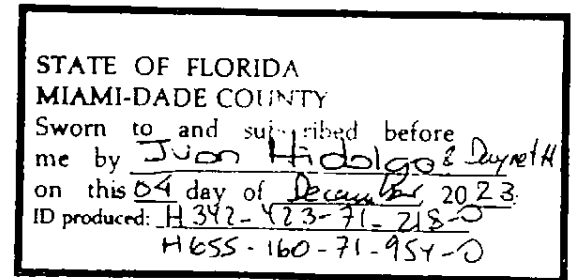 STATE OF FLORIDA
MIAMI-DADE COUNTY
Sworn to and subscribed before
me by Juan Hidalgo & Dayret H
on this 04 day of December 2023
ID produced: H 342-423-71-218-0
H655-160-71-954-0